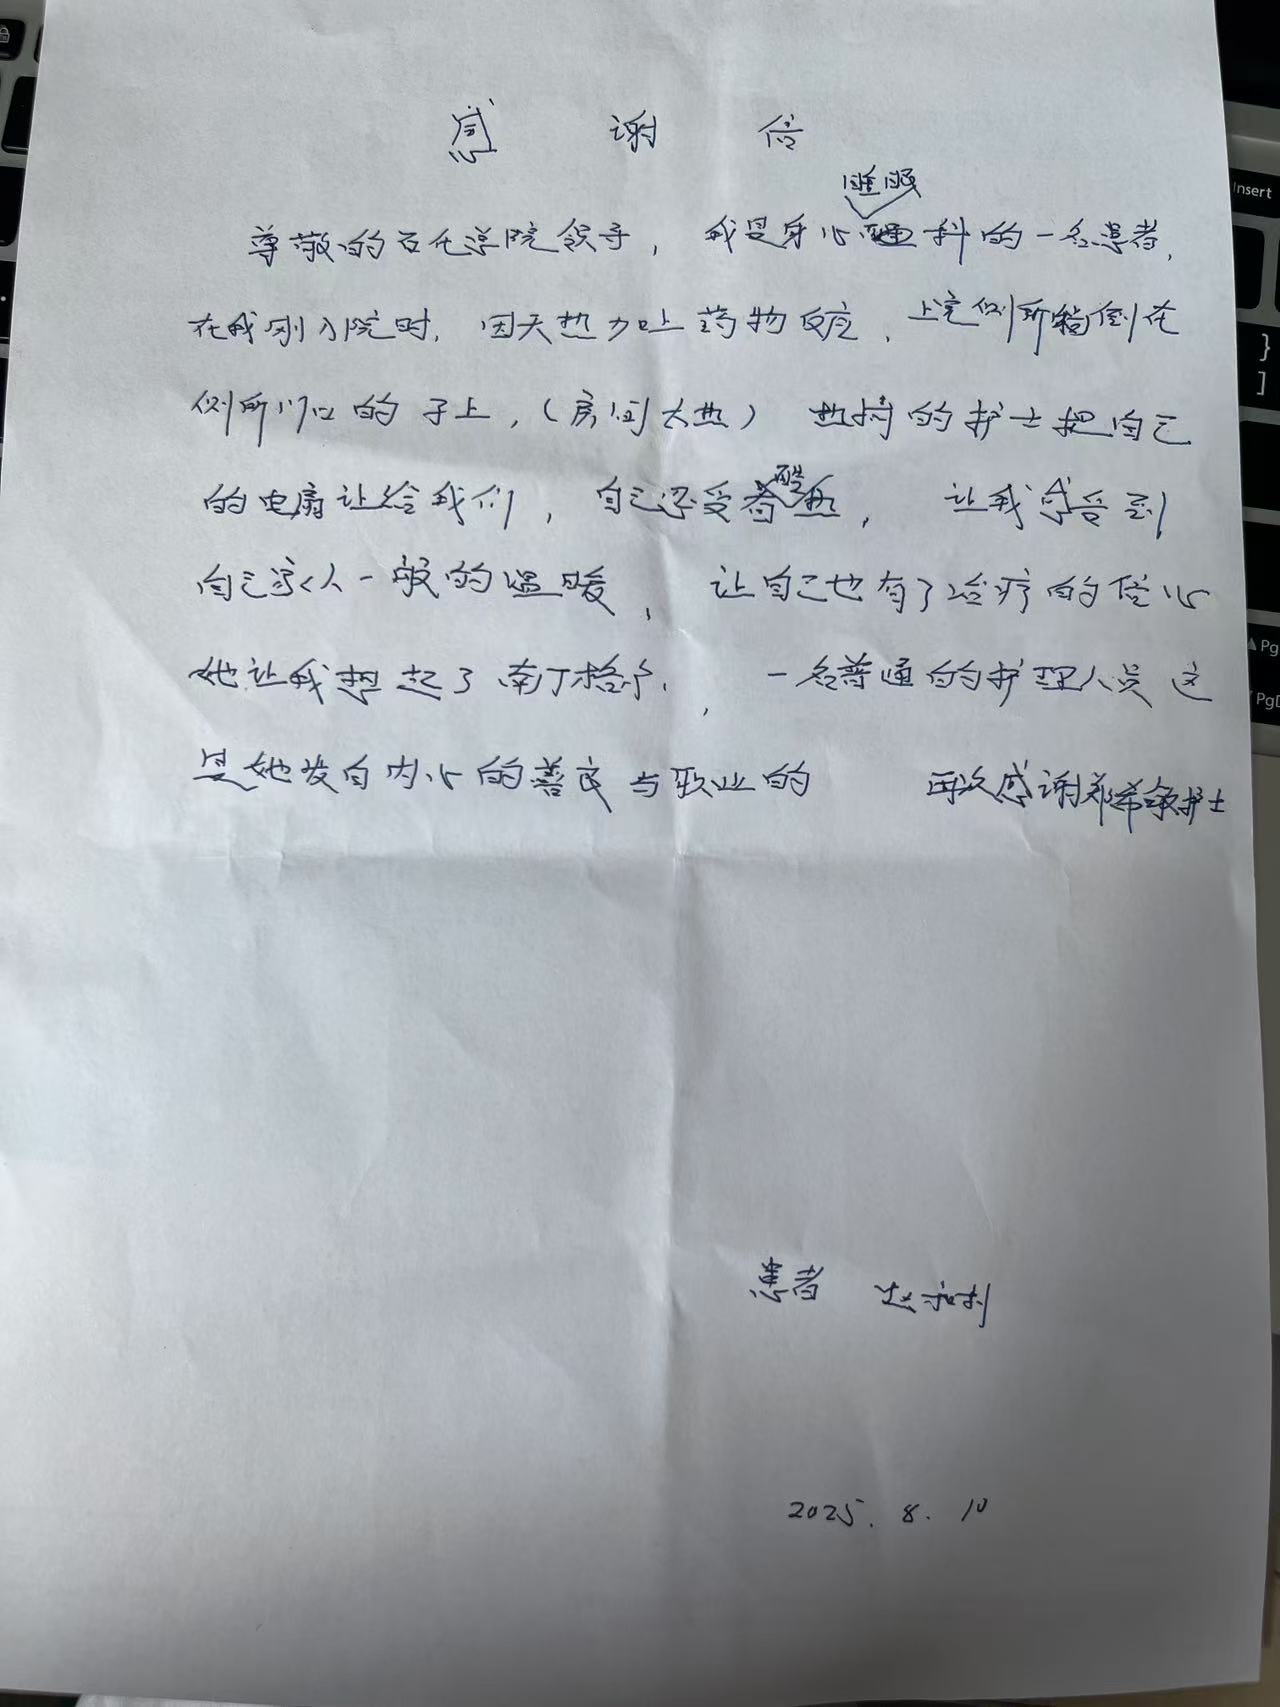 感谢信
尊敬的石化学院领导，我是身心睡眠科的一名患者，
在我刚入院时，因天热加上药物反应，上完侧所 倒在
侧所门口的子上，（房间太热）热情的护士把自己
的电扇让给我们，自己还受着酷热，让我感受到
自己家人一般的温暖，让自己也有了治疗的信心
她让我想起了南丁格尔，一名普通的护理人员这
是她发自内心的善良与职业的 再次感谢郑希 护士
患者 赵和利
2025.8.10
Insert
}
]
Pg
PgD